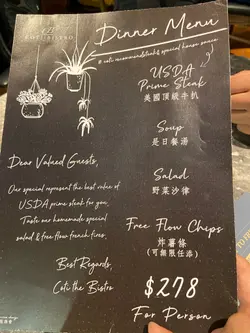 Dinner Menu
USDA
Prime Steak
美國頂級牛扒
Soup
是日餐湯
Dear Valued Guests,
Salad
野菜沙律
Our special represent the best value of
USDA prime steak for you,
Taste our homemade special
salad & free flow french fires.
Free Flow Chips
炸薯條
(可無限任添)
Best Regards,
Coti the Bistro
$278
For Person